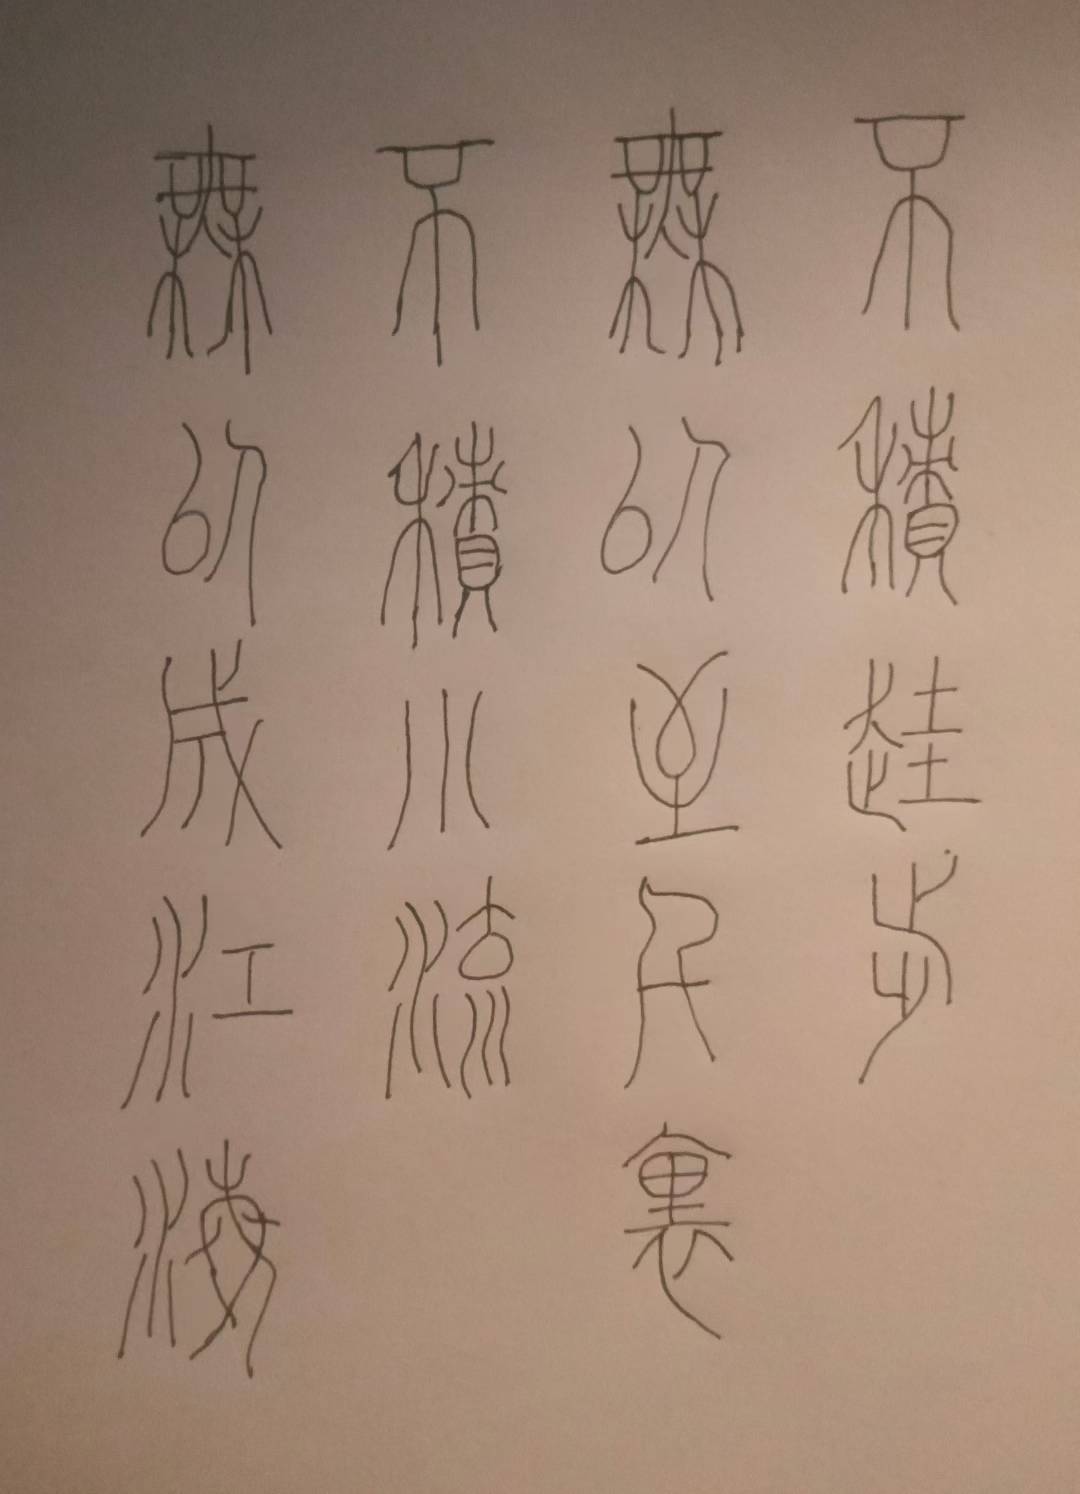 不積䞨步
無以至千裏
不積小流
無以成江海